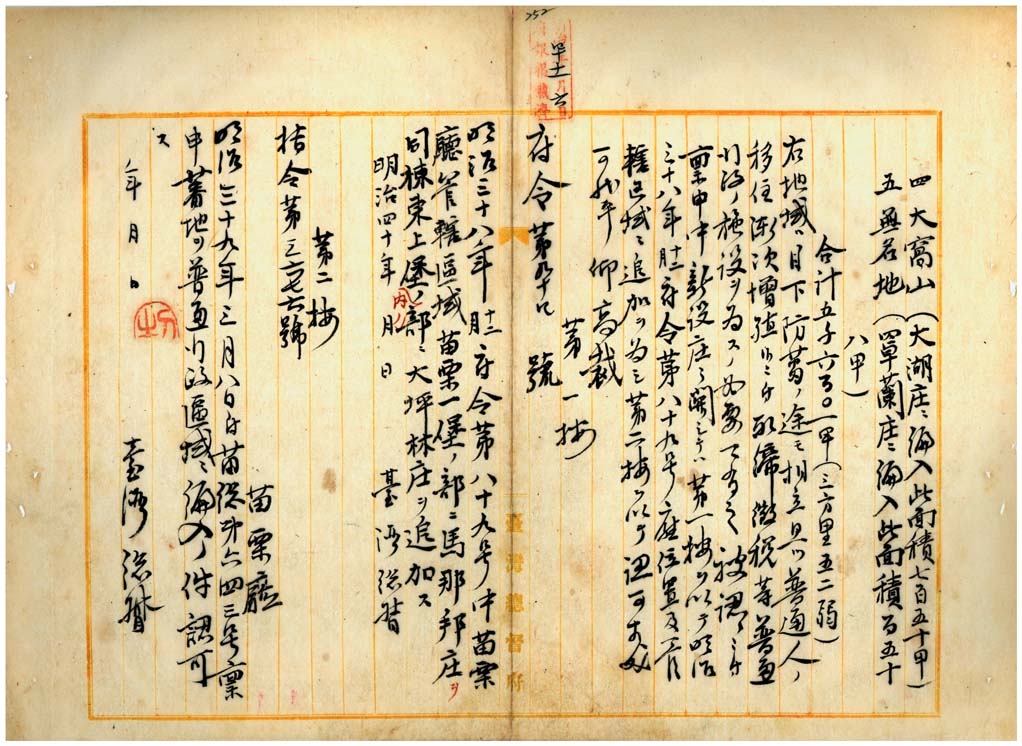 252
四 大窩山(大湖庄ニ編入此面積七百五十甲)
五 無名地(罩蘭庄ニ編入此面積百五十
八甲)
合計五千六百〇一甲(三方里五二弱)
右地域ハ目下防蕃ノ途モ相立且ツ普通人ノ
移住漸次増殖シ 取締徴税等普通
行政ノ施設ヲ為スノ必要 被認
稟申中新設庄ニ関シテハ第一按ヲ以テ明治
三十八年十二月府令第八十九号庁位置及管
轄区域ニ追加ヲ為シ第二按ヲ以テ認可
可 仰高裁
第一按
府令第九十 號
明治三十八年十二月府令第八十九号中苗栗
廳管轄區域苗栗一堡ノ部ニ馬那邦庄ヲ
同棟東上堡ノ内ノ部ニ大坪林庄ヲ追加ス
明治四十年 月 日
臺湾総督
第二按
指令第三 六號
苗栗廳
明治三十九年三月八日付苗総第六四三号稟
申蕃地ヲ普通行政區域ニ編入ノ件認可
ス
年 月 日
臺湾総督
臺灣總督府